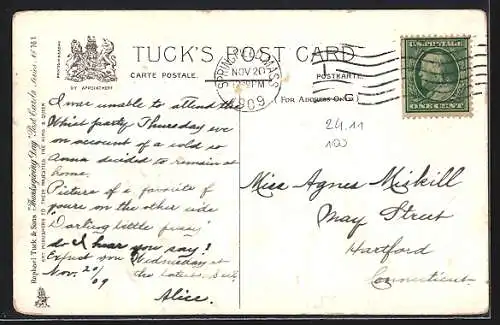 TUCK'S POST CARD
CARTE POSTALE.
POSTKARTE.
BY APPOINTMENT
(FOR ADDRESS ONLY)
SPRINGFIELD, MASS.
NOV 20
PM
1909
U.S. POSTAGE
ONE CENT
24.11
100
I was unable to attend the
Whist party Thursday eve
on account of a cold so
Anna decided to remain at
home.
Picture of a favorite of
yours on the other side
"Darling little pussy"
do I hear you say!
Expect you Wednesday at
the latest.
Nov. 20/09
Alice.
Miss Agnes Miskill
May Street
Hartford
Connecticut
Raphael Tuck & Sons "Thanksgiving Day" Post Cards Series
ART PUBLISHERS TO THEIR MAJESTIES THE KING & QUEEN